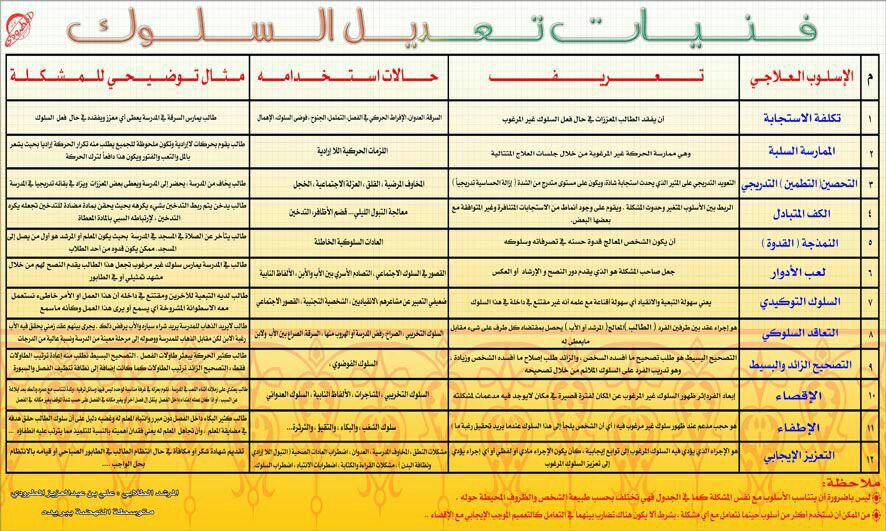 فنيات تعديل السلوك
م الإسلوب العلاجي تعريف حالات استخدامه مثال توضيحي للمشكلة
١ تكلفة الاستجابة أن يفقد الطالب المعززات في حال فعل السلوك غير المرغوب السرقة، العدوان، الإفراط الحركي في الفصل، التململ، الجنوح، فوضى السلوك، الإهمال طالب يمارس السرقة في المدرسة يعطى أي معزز ويفقده في حال فعل السلوك
٢ الممارسة السلبة وهي ممارسة الحركة غير المرغوبة من خلال جلسات العلاج المتتالية اللزمات الحركية اللا إرادية طالب يقوم بحركات لا إرادية وتكون ملحوظة للجميع يطلب منه تكرار الحركة إراديا بحيث يشعر
بالملل والتعب والفتور ويكون هذا دافعاً لترك الحركة
٣ التحصين( التطمين ) التدريجي التعويد التدريجي على المثير الذي يحدث استجابة شاذة، ويكون على مستوى متدرج من الشدة ( إزالة الحساسية تدريجياً ) المخاوف المرضية، القلق، العزلة الاجتماعية، الخجل طالب يخاف من المدرسة، يحضر إلى المدرسة ويعطى بعض المعززات ويزاد في بقائه تدريجيا في المدرسة
٤ الكف المتبادل الربط بين الأسلوب المتغير وحدوث المشكلة . ويقوم على وجود أنماط من الاستجابات المتنافرة وغير المتوافقة مع
بعضها البعض. معالجة التبول الليلي... قضم الأظافر، التدخين طالب يدخن يتم ربط التدخين بشيء يكرهه بحيث يحقن بمادة مضادة للتدخين تجعله يكره
التدخين ، لإرتباطه السيئ بالمادة المعطاة
٥ النمذجة ( القدوة ) أن يكون الشخص المعالج قدوة حسنه في تصرفاته وسلوكه العادات السلوكية الخاطئة طالب يتأخر عن الصلاة في المسجد في المدرسة بحيث يكون المعلم أو المرشد هو أول من يصل إلى
المسجد، ممكن يكون قدوه من أحد الطلاب
٦ لعب الأدوار جعل صاحب المشكلة هو الذي يقدم دور النصح والإرشاد أو العكس القصور في السلوك الاجتماعي، التصادم الأسري بين الأب والأبن، الألفاظ النابية طالب في المدرسة يمارس سلوك غير مرغوب تجعل هذا الطالب يقدم النصح لهم من خلال
مشهد تمثيلي أو في الطابور
٧ السلوك التوكيدي يعني سهولة التبعية والانقياد أي سهولة أقناعة مع علمه انه غير مقتنع في داخلة في هذا السلوك ضعيفي التعبير عن مشاعرهم الانقياديين، الشخصية التجنبية، القصور الاجتماعي طالب لديه التبعية للآخرين ومقتنع في داخله أن هذا العمل أو الأمر خاطىء تستعمل
معه الاسطوانة المشروخة أي يسمع أو يرى هذا العمل وكأنه ماسمع
٨ التعاقد السلوكي هو إجراء عقد بين طرفين الفرد ( الطالب )المعالج( المرشد أو الأب ) يحصل بمقتضاه كل طرف على شيء مقابل
مايعطى له السلوك التخريبي، الصراخ، رفض المدرسة أو الهروب منها، السرقة، الصراع بين الأب ولابن طالب لايريد الذهاب للمدرسة يريد شراء سياره والأب يرفض ذلك . يجرى بينهم عقد زمني يحقق فيه الأب
رغبة الابن لكن مقابل الذهاب للمدرسة ووصوله إلى مرحلة معينة من المدرسة ونسبة عالية من الدرجات
٩ التصحيح الزائد والبسيط التصحيح البسيط هو طلب تصحيح ما أفسده الشخص ، والزائد طلب إصلاح ما أفسده الشخص وزيادة ،
وهو تدريب الفرد على السلوك الملائم من خلال تصحيحه السلوك الفوضوي، طالب كثير الحركة يبعثر طاولات الفصل . التصحيح البسيط تطلب منه إعادة ترتيب الطاولات
فقط ، التصحيح الزائد ترتيب الطاولات كما كانت إضافة إلى نظافة تنظيف الفصل والسبورة
١٠ الإقصاء إبعاد الفرد إثر ظهور السلوك غير المرغوب عن المكان لفترة قصيرة في مكان لايوجد فيه مدعمات لمشكلته السلوك التخريبي، المشاجرات، الألفاظ النابية، السلوك العدواني
١١ الإطفاء هو حجب مدعم عند ظهور سلوك غير مرغوب فيه ( أي أن الشخص يلجأ إلى هذا السلوك عندما يريد تحقيق رغبة ما ) سلوك الشغب، والبكاء، والتقيؤ، والثرثرة... طالب كثير البكاء داخل الفصل دون مبرر وانتباه المعلم له وغضبه دليل على أن سلوك الطالب حقق هدفه
في مضايقة المعلم ، وأن تجاهل المعلم له يعني فقدان أهميته بالنسبة للتلميذ مما يترتب عليه انطفاؤه ....
١٢ التعزيز الإيجابي هو الإجراء الذي يؤدي فيه السلوك المرغوب إلى توابع إيجابية ، كأن يكون الإجراء مادي أو لفظي أو أي إجراء يؤدي
إلى تعزيز السلوك المرغوب مشكلات النطق، المخاوف المدرسية، العدوان، اضطراب العادات الصحية ( التبول اللا إرادي
ونظافة البدن ) ، مشكلات القراءة والكتابة، اضطرابات الانتباه، اضطراب السلوك. تقديم شهادة شكر أو مكافأة في حال انتظام الطالب في الطابور الصباحي أو قيامه بالانتظام
بحل الواجب ....
ملاحظة:
ليس باضرورة أن يتناسب الأسلوب مع نفس المشكلة كما في الجدول فهي تختلف بحسب طبيعة الشخص والظروف المحيطة حوله .
من الممكن أن نستخدم أكثر من أسلوب حينما نتعامل مع أي مشكلة ، بشرط ألا يكون هناك تضارب بينهما في التعامل كالتعميم الموجب الإيجابي مع الإقصاء ..
المرشد الطلابي : علي بن عبدالعزيز المطرودي
متوسطة النهضة ببريده